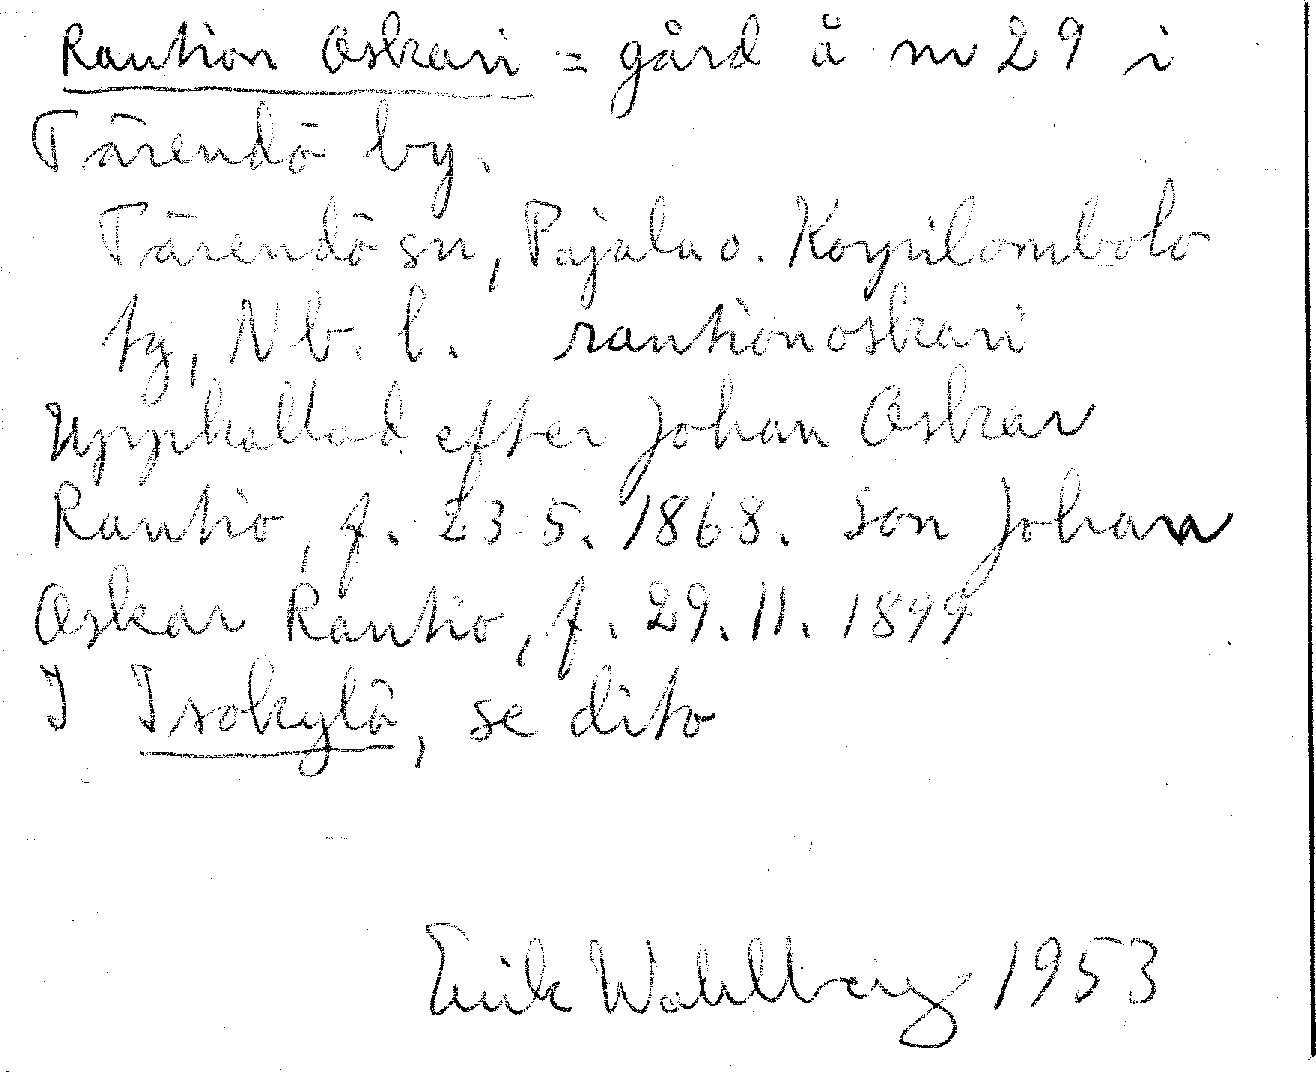 Raution Oskari = gård å nr 29 i
Tärendö by.
Tärendö sn, Pajala o. Korpilombolo
tg, Nb. l. rautionoskari
Uppkallad efter Johan Oskar
Rautio, f. 23.5.1868. Son Johan
Oskar Rautio, f. 29.11.1899
I Isokylä, se dito
Erik Wahlberg 1953